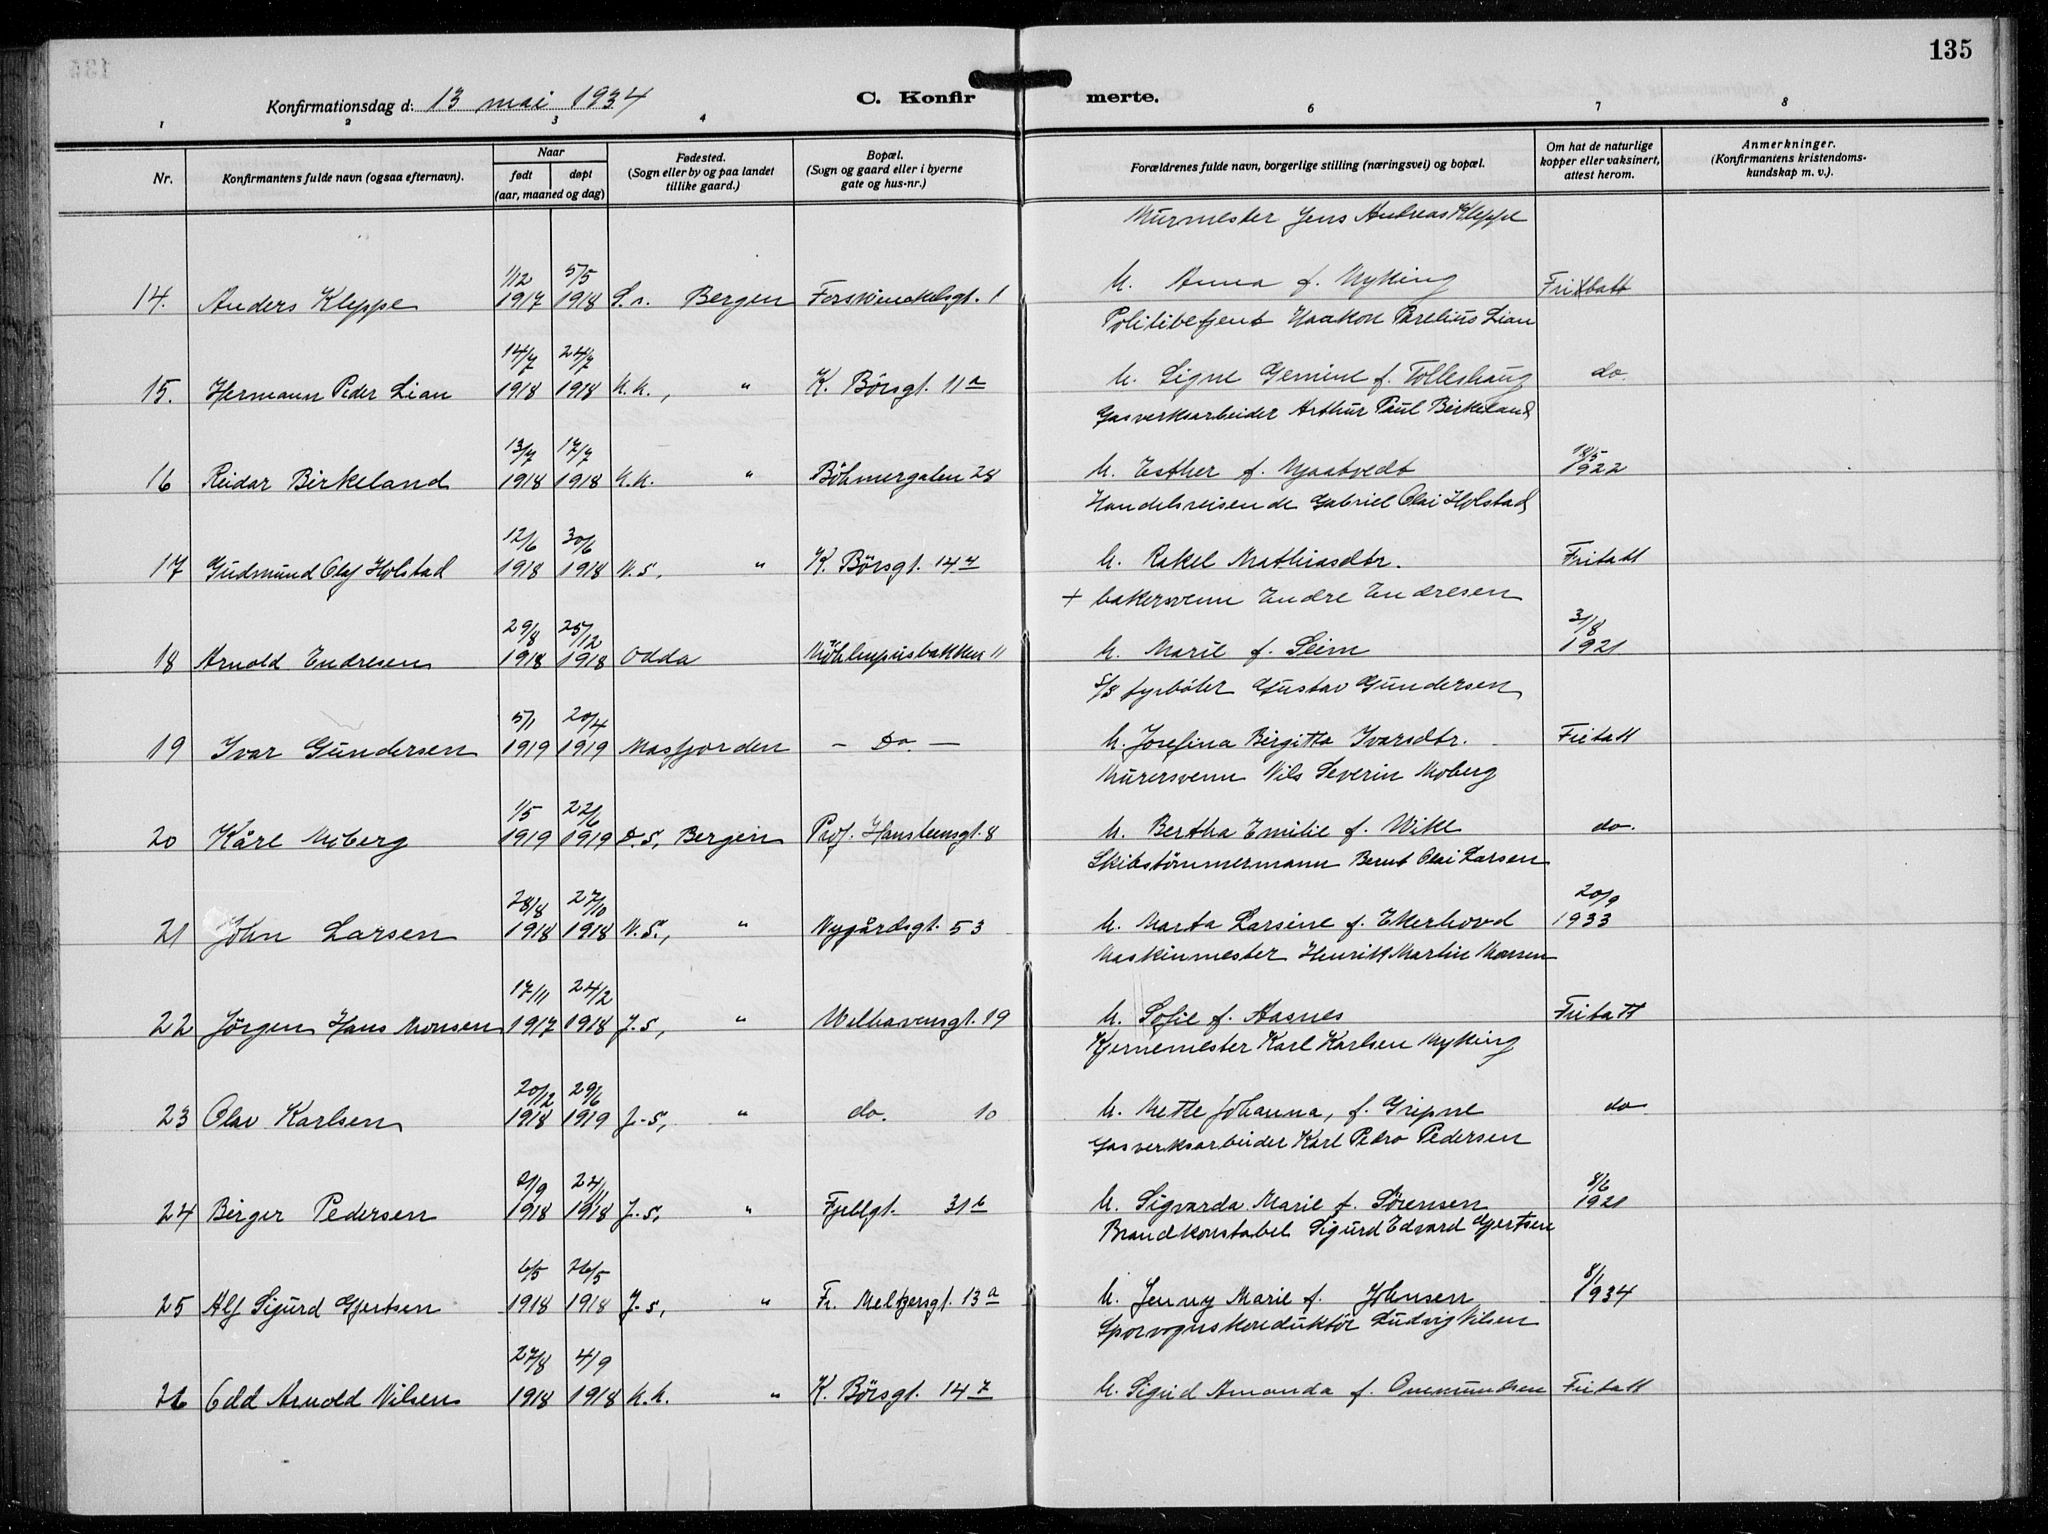 135
Konfirmationsdag d: 13 mai 1934
C. Konfirmerte.
1 2 3 4 6 7 8
Nr.
Konfirmantens fulde navn (ogsaa efternavn).
Naar
født døpt
(aar, maaned og dag)
Fødested.
(Sogn eller by og paa landet
tillike gaard.)
Bopæl.
(Sogn og gaard eller i byerne
gate og hus-nr.)
Forældrenes fulde navn, borgerlige stilling (næringsvei) og bopæl.
Om hat de naturlige
kopper eller vaksinert,
attest herom.
Anmerkninger.
(Konfirmantens kristendoms-
kundskap m. v.).
Murmester Jens Andreas Kleppe
1/12 5/5
14. Anders Kleppe 1917 1918 Bergen 1 h. Anna f. Myking Fritatt
Politibetjent Haakon Parelius Lian
14/7 24/7
15. Hermann Peder Lian 1918 1918 k.k., " K. Börsgt. 11a h. Signe Gemine f. Tolleshaug do.
Gasverksarbeider Arthur Paul Birkeland
13/7 17/7 18/5
16 Reidar Birkeland 1918 1918 k.k. " Böhmergaten 28 h. Esther f. Mjaatvedt 1922
Handelsreisende Gabriel Olai Holstad
12/6 30/6
17 Gudmund Olaf Holstad 1918 1918 N.S. " K. Börsgt. 14 h. Rakel Mathiasdtr. Fritatt
+ bakersvenn Endre Endresen
29/8 25/12 3/8
18 Arnold Endresen 1918 1918 Odda Möhlenprisbakken 11 h. Marie f. Seim 1921
S/S fyrböter Gustav Gundersen
5/1 20/4
19 Ivar Gundersen 1919 1919 Masfjorden - Do. - h. Josefina Birgitta Ivarsdtr. Fritatt
Murersvenn Nils Severin Moberg
1/5 22/6
20 Kåre Moberg 1919 1919 D.S, Bergen Prof. Hansteensgt. 8 h. Bertha Emilie f. Wike do.
Skibstömmermann Bernt Olai Larsen
28/8 27/10 20/9
21 John Larsen 1918 1918 N.S., " Nygårdsgt. 53 h. Marta Larsine f. Ekerhovd 1933
Maskinmester Henrik Martin Monsen
17/11 24/2
22 Jörgen Hans Monsen 1917 1918 J.S, " Welhavensgt. 19 h. Sofie f. Aasnes Fritatt
Kjernemester Karl Karlsen Myking
20/12 29/6
23 Olav Karlsen 1918 1919 J.S, " do. 10 h. Mette Johanna, f. Gripne do
Gasverksarbeider Karl Pedro Pedersen
2/9 24/11 8/6
24 Birger Pedersen 1918 1918 J.S, " Fjellgt. 31b h. Sigvarda Marie f. Sörensen 1921
Brandkonstabel Sigurd Edvard Gjertsen
6/5 26/5 8/1
25 Alf Sigurd Gjertsen 1918 1918 J.S, " Fr. Meltzersgt. 13a h. Jenny Marie f. Johnsen 1934
Sporvognskonduktör Ludvig Nilsen
27/8 4/9
26 Odd Arnold Nilsen 1918 1918 k.k. " K. Börsgt. 14 h. Sigrid Amanda f. Fritatt